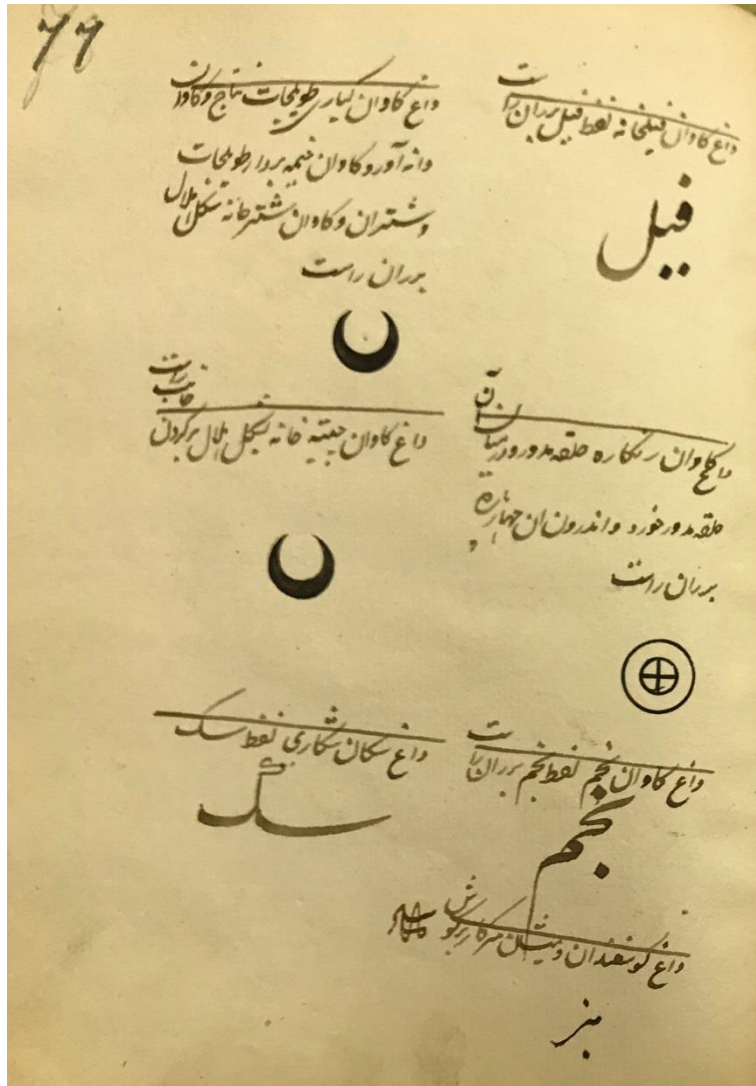 ٦٦
داغ گاوان فیلخانه لفظ فیل بر ران راست
فیل
داغ گاوان رنکاره حلقه مدور و درمیان آن
حلقه مدور خورد و اندرون ان چهار
بر ران راست
داغ گاوان نجم لفظ نجم بر ران راست
نجم
داغ گوسفندان و میشان سرکار بر گوش
بز
داغ گاوان کیاری طویلجات نتاج و گاوان
دانه آور و گاوان خیمه بردار طویلجات
و شتران و گاوان شترخانه بشکل هلال
بر ران راست
داغ گاوان چیته خانه بشکل هلال بر گردن
جانب راست
داغ سگان شکاری لفظ سگ
سگ